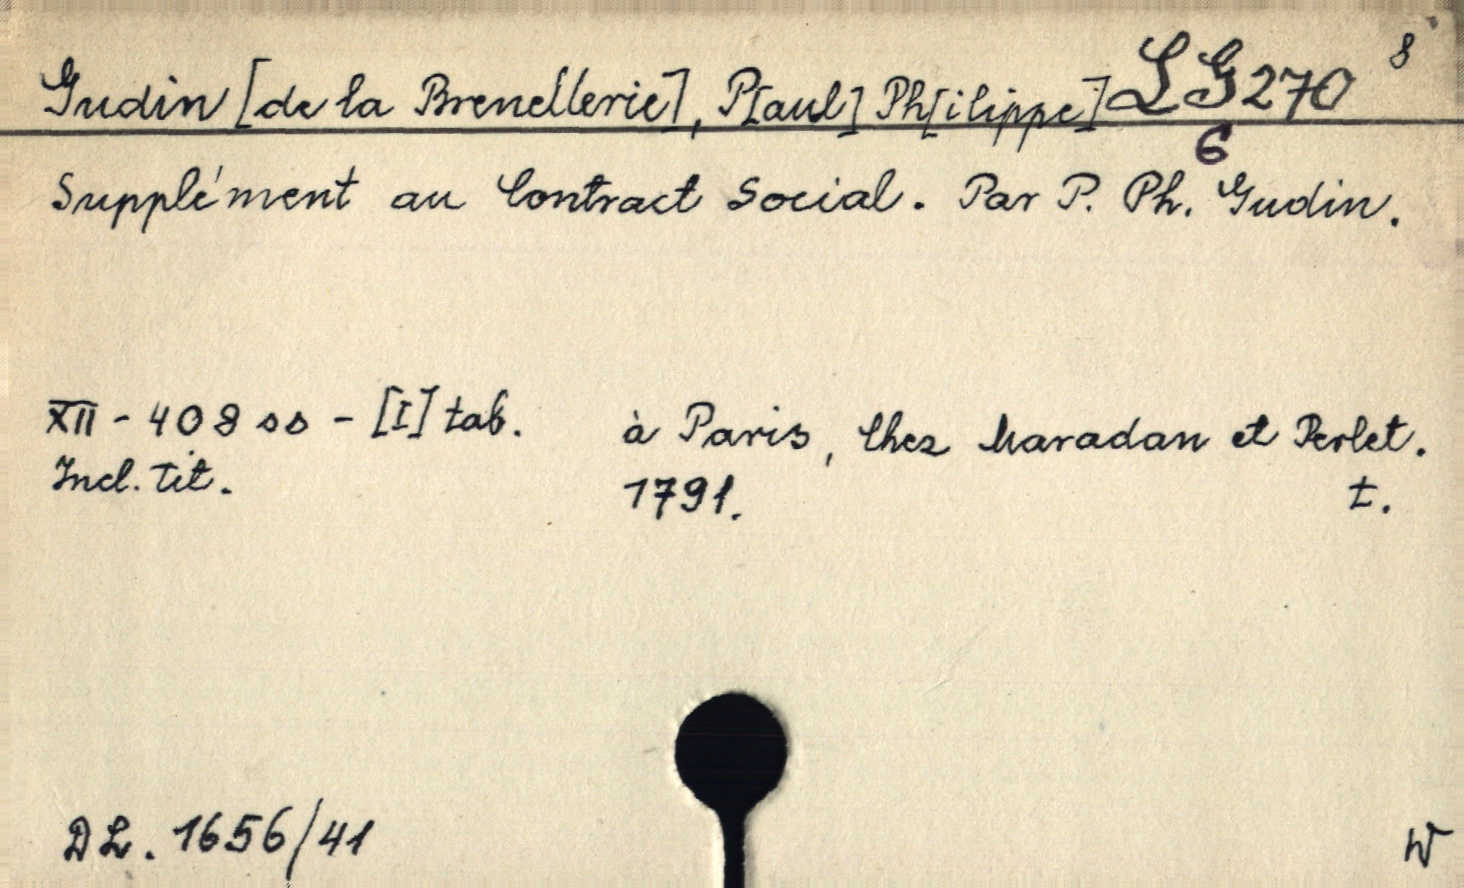 Gudin [de la Brenellerie], P[aul] Ph[ilippe] LG 270 8°
6
Supplément au Contract Social. Par P. Ph. Gudin.
XII - 408 ss - [I] tab. à Paris, Chez Maradan et Perlet.
Incl. Tit. 1791. t.
DL. 1656/41 W